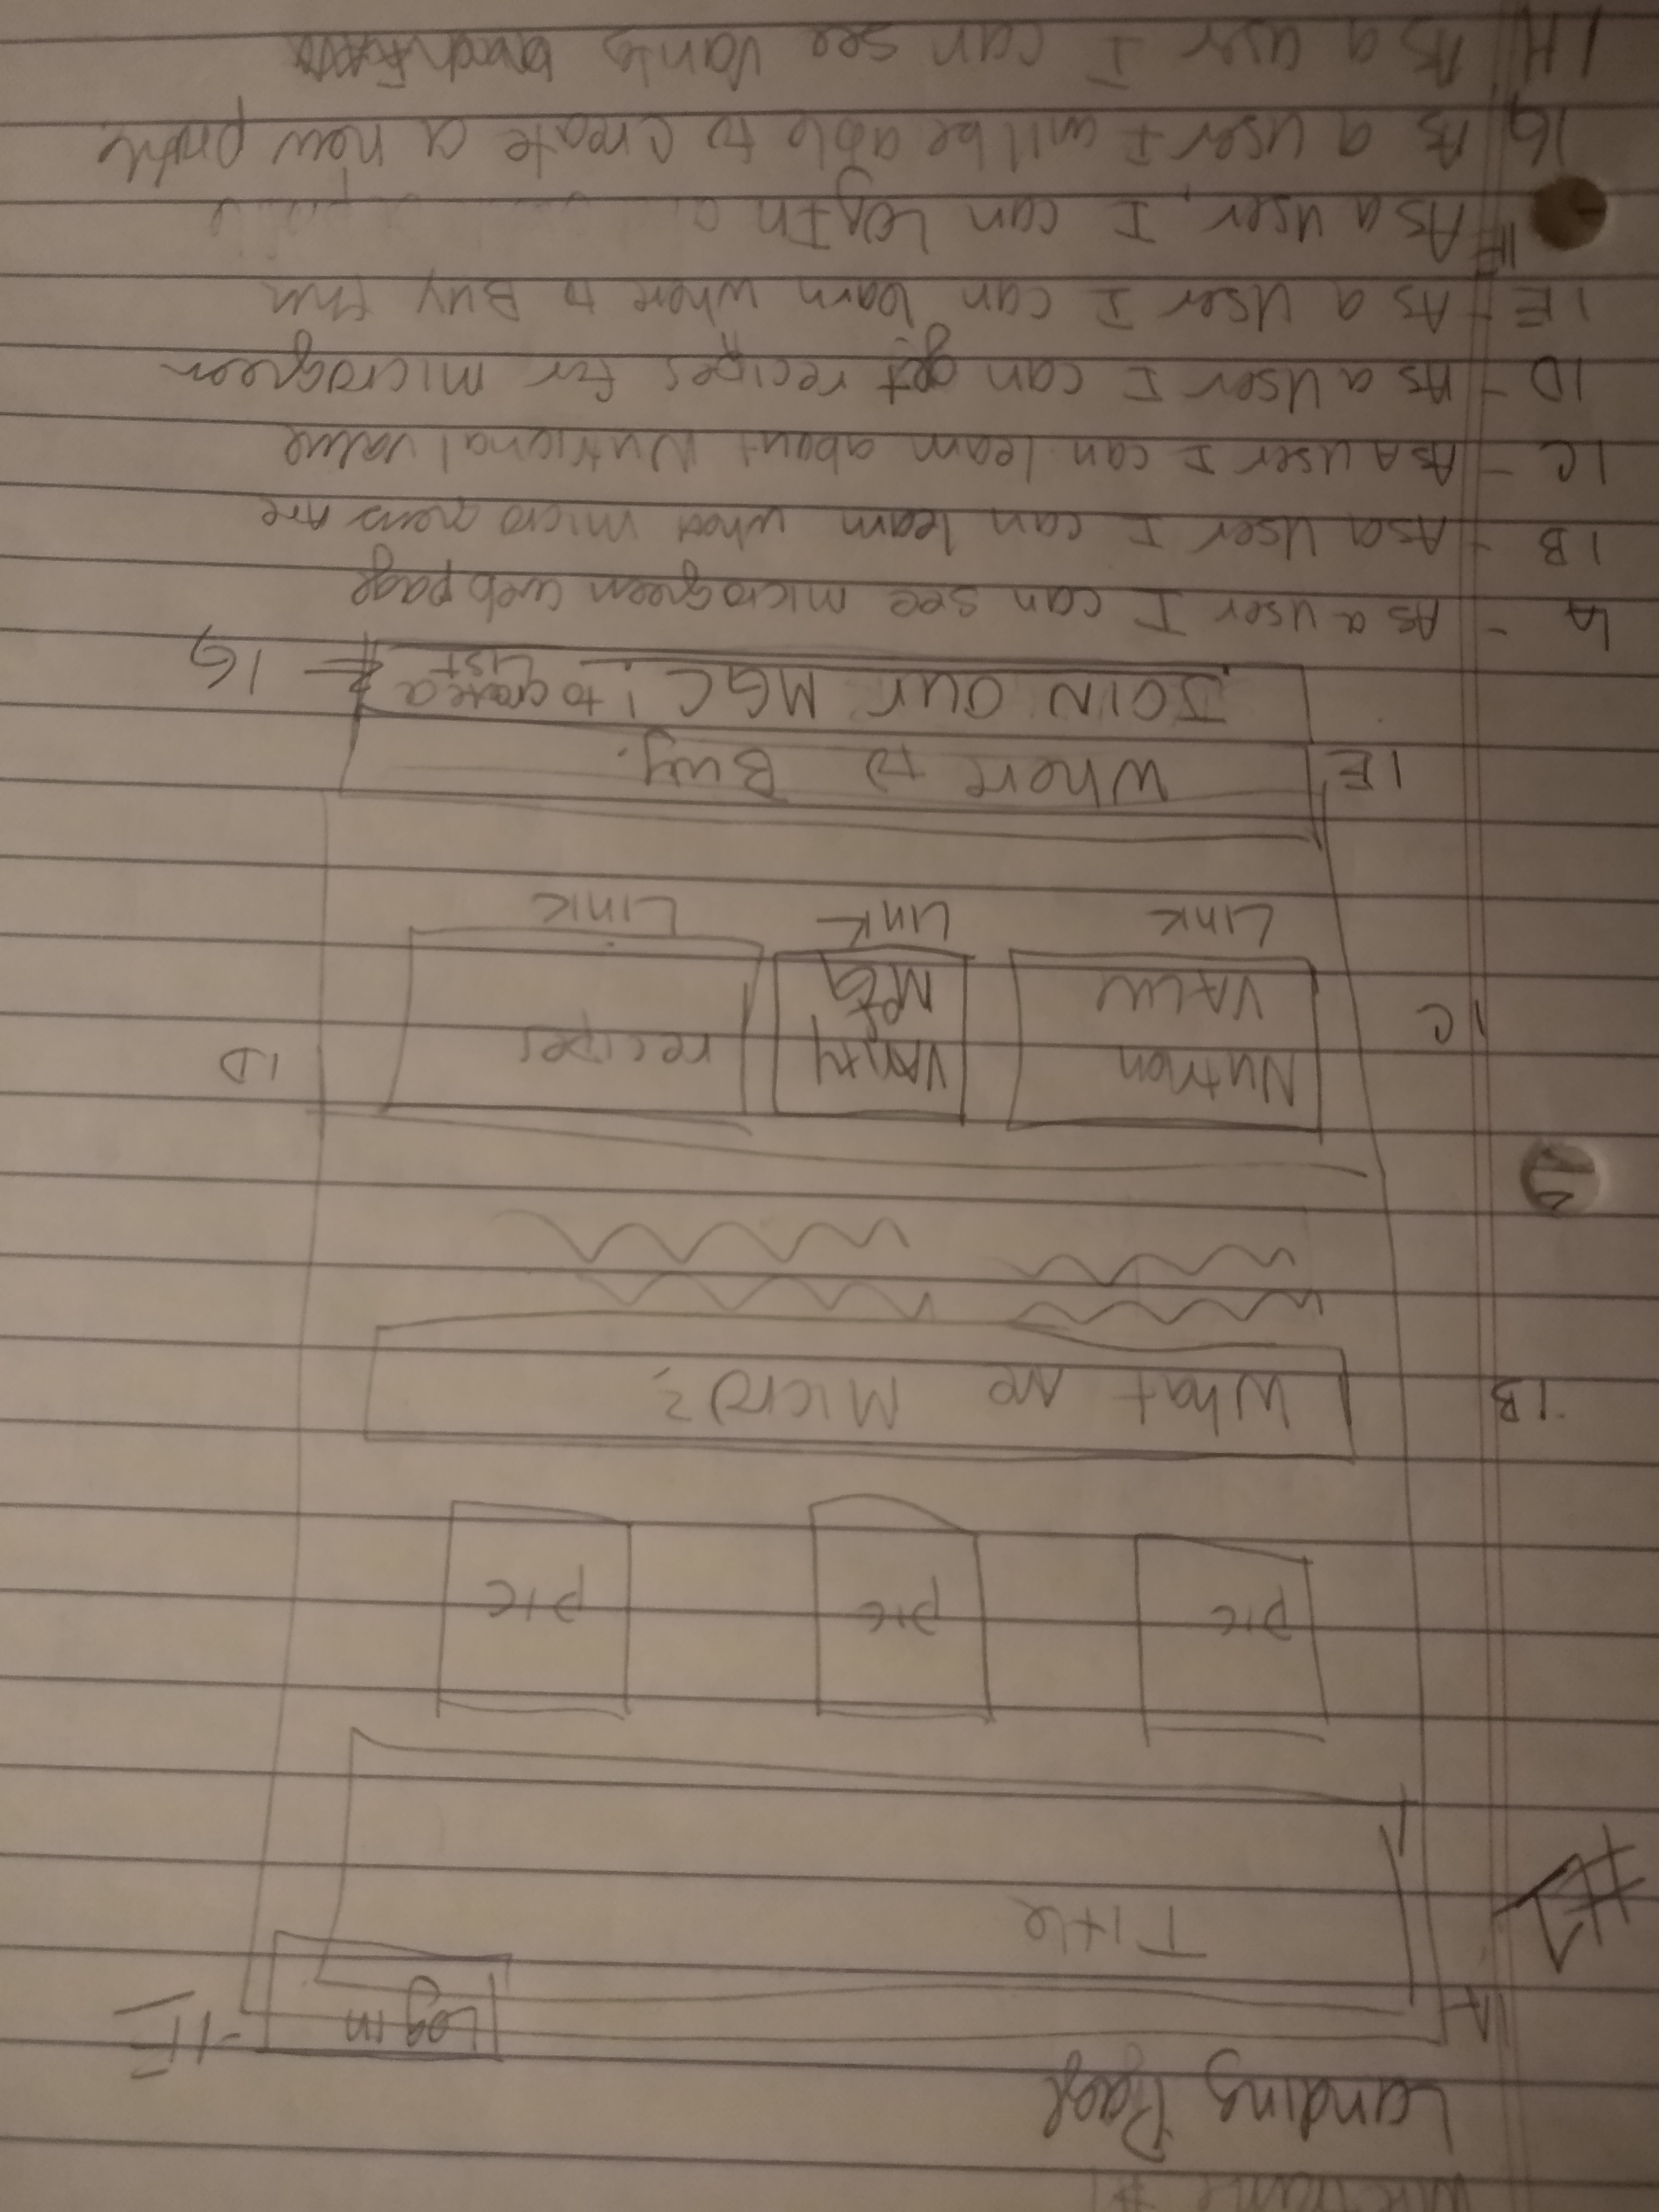 Wireframe #1
Landing Page
1A
Login
-1F
#1
Title
pic pic pic
1B
What are Micro?
1C
Nutrion Value
Varity
recipes
1D
Link Link Link
1E
Where to Buy.
JOIN our MGC! to create a LIST
1G
1A - As a user I can see microgreen webpage
1B - As a User I can learn what micro greens Are
1C - As A user I can learn about Nutrional value
1D - As a User I can get recipes for microgreen
1E - As a User I can learn where to Buy thm
1F As a user, I can LogIn
1G As a user I will be able to create a new profile
1H As a user I can see